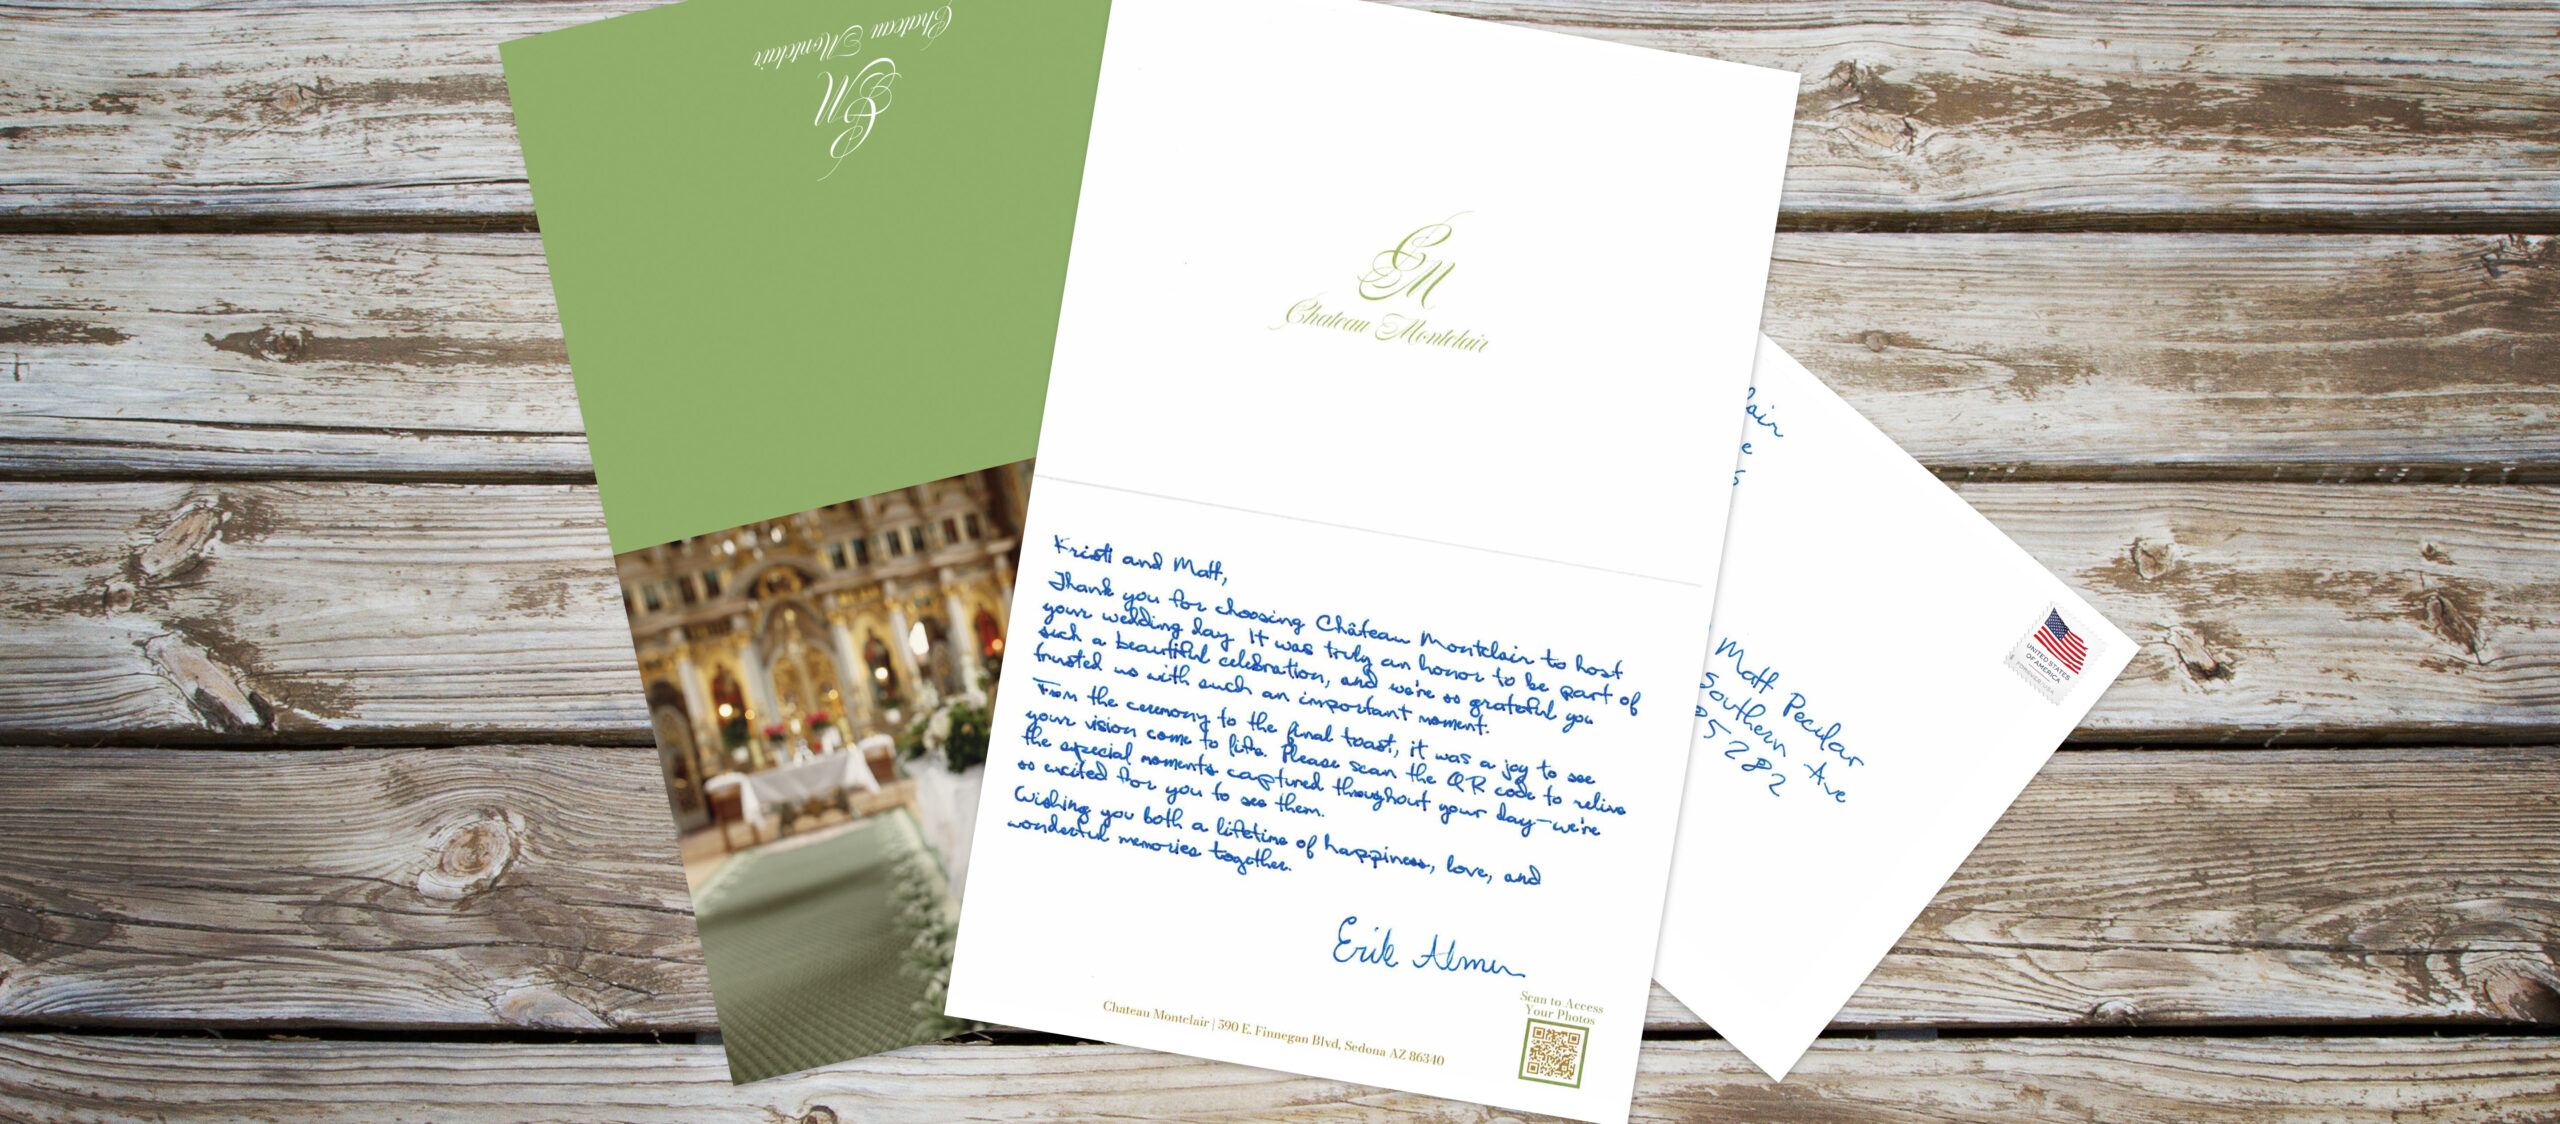 Chateau Montclair
CM
CM
Chateau Montclair
Kristi and Matt,
Thank you for choosing Château Montclair to host
your wedding day. It was truly an honor to be part of
such a beautiful celebration, and we're so grateful you
trusted us with such an important moment.
From the ceremony to the final toast, it was a joy to see
your vision come to life. Please scan the QR code to relive
the special moments captured throughout your day—we're
so excited for you to see them.
Wishing you both a lifetime of happiness, love, and
wonderful memories together.
Erik
Scan to Access
Your Photos
Chateau Montclair | 390 E. Finnegan Blvd, Sedona AZ 86340
lair
e
UNITED STATES
OF AMERICA
FOREVER/USA
Matt Pecular
Southern Ave
85282